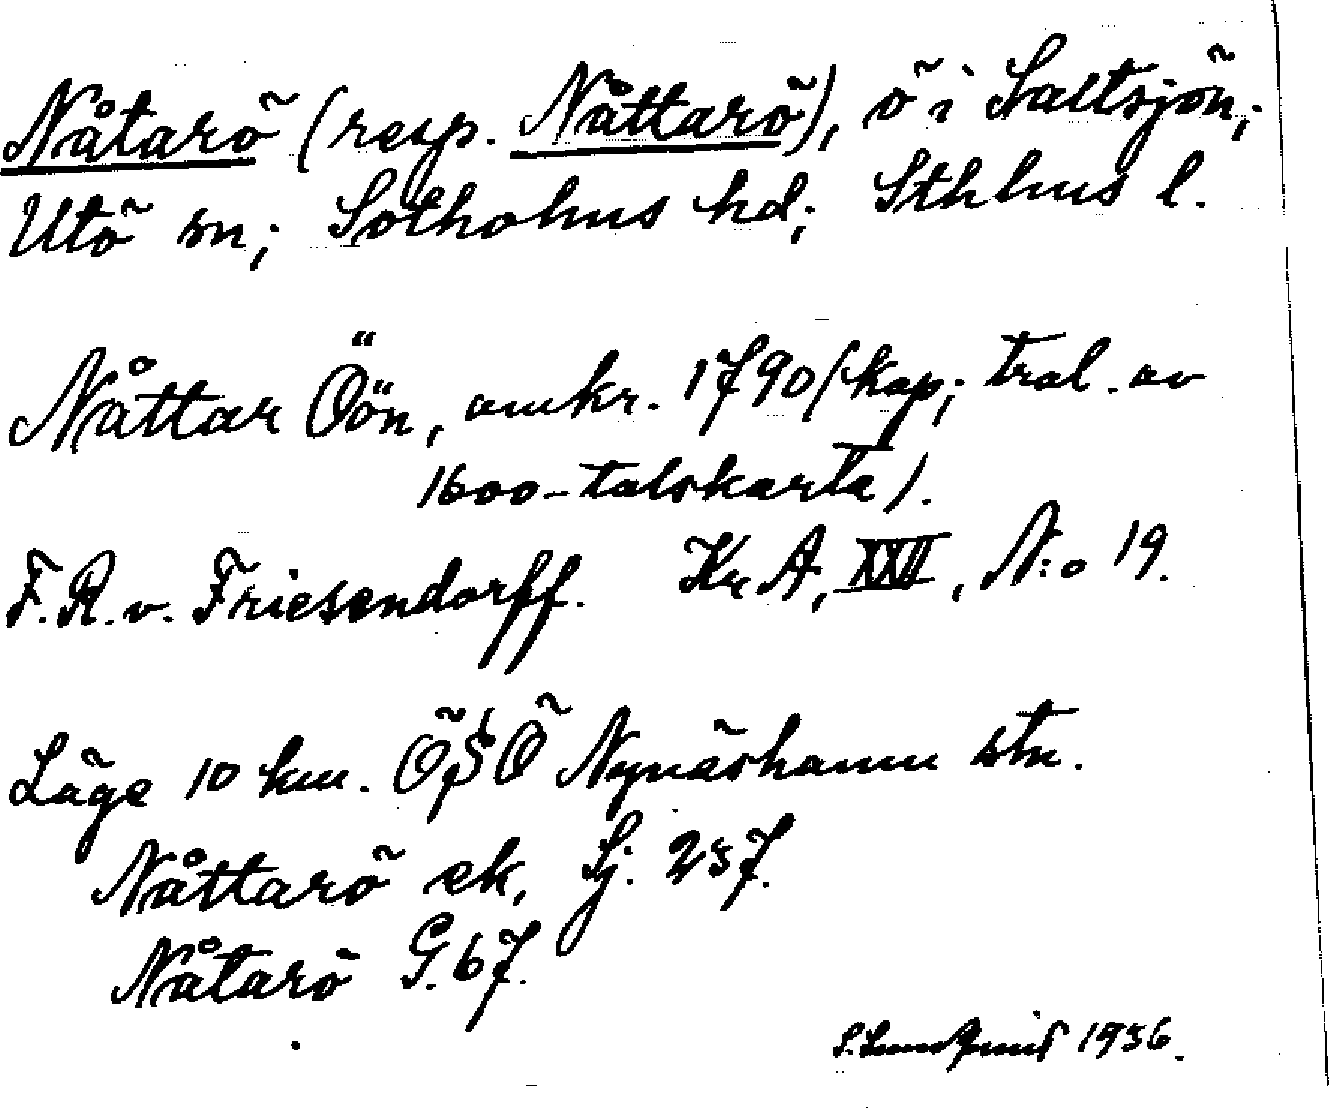 Nåtarö (resp. Nåttarö), ö i Saltsjön,;
Utö sn; Sotholms hd; Sthlms l.
Nåttar Öön, omkr. 1790 (kop; trol. av
1600-talskarta).
F.R.v. Friesendorff. Kr A, XXII, N:o 19.
Läge 10 km. ÖSÖ Nynäshamn stn.
Nåttarö ek, Sj. 237.
Nåtarö G. 67.
S. Lundquist 1936.